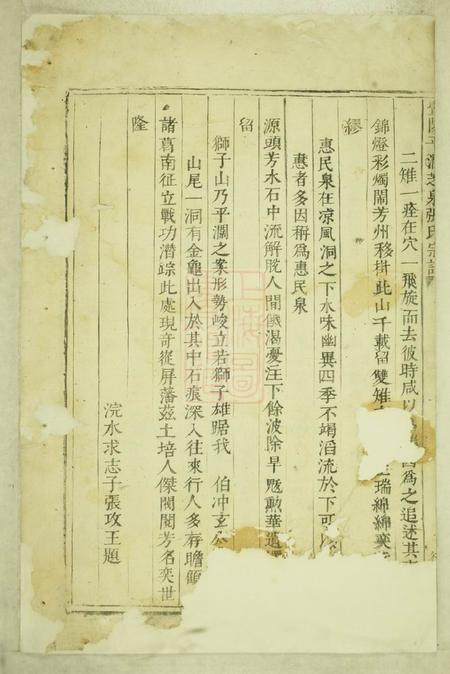 平濶芝泉張氏宗譜
二雉一瘞在穴一飛旋而去彼時咸以為之追述其
錦燈彩燭鬧芳州移樹此山千載留雙雉瑞綿綿奕
繆
惠民泉在凉風洞之下水味幽異四季不竭滔流於下可
惠者多因稱為惠民泉
源頭芳水石中流解脫人間饑渴憂注下餘波除旱魃勲華
留
獅子山乃平濶之案形勢峻立若獅子雄踞我 伯冲玄
山尾一洞有金龜出入於其中石痕深入往來行人多存瞻顧
諸葛南征立戰功潛踪此處現奇從屏藩茲土培人傑閥閱芳名奕世
隆
浣水求志子張攻王題